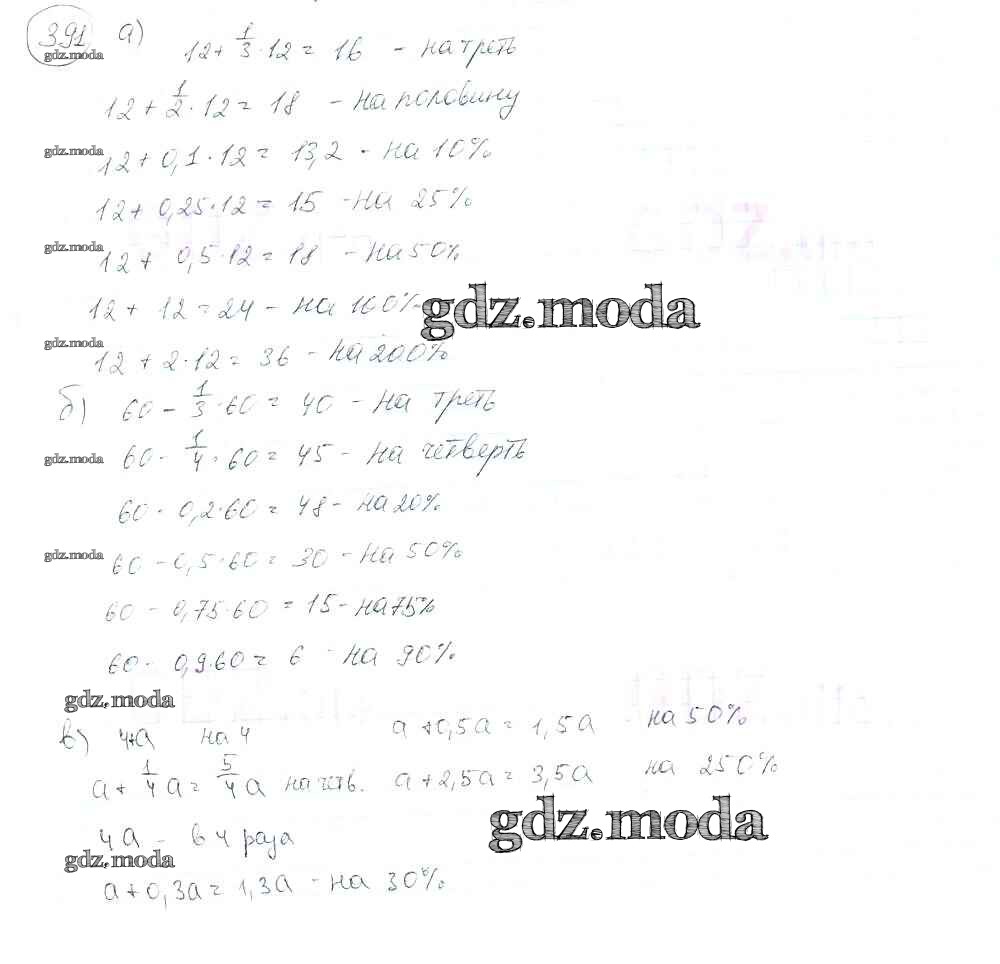 391 а) 12 + 1/3 · 12 = 16 - на треть
gdz.moda
12 + 1/2 · 12 = 18 - на половину
gdz.moda
12 + 0,1 · 12 = 13,2 - на 10%
12 + 0,25 · 12 = 15 - на 25%
gdz.moda
12 + 0,5 · 12 = 18 - на 50%
12 + 12 = 24 - на 100%
gdz.moda
gdz.moda
12 + 2 · 12 = 36 - на 200%
б) 60 - 1/3 · 60 = 40 - на треть
gdz.moda
60 - 1/4 · 60 = 45 - на четверть
60 - 0,2 · 60 = 48 - на 20%
gdz.moda
60 - 0,5 · 60 = 30 - на 50%
60 - 0,75 · 60 = 15 - на 75%
60 - 0,9 · 60 = 6 - на 90%
gdz.moda
в) 4+a на 4 a + 0,5a = 1,5a на 50%
a + 1/4 a = 5/4 a на четв. a + 2,5a = 3,5a на 250%
gdz.moda
4a - в 4 раза
gdz.moda
a + 0,3a = 1,3a - на 30%